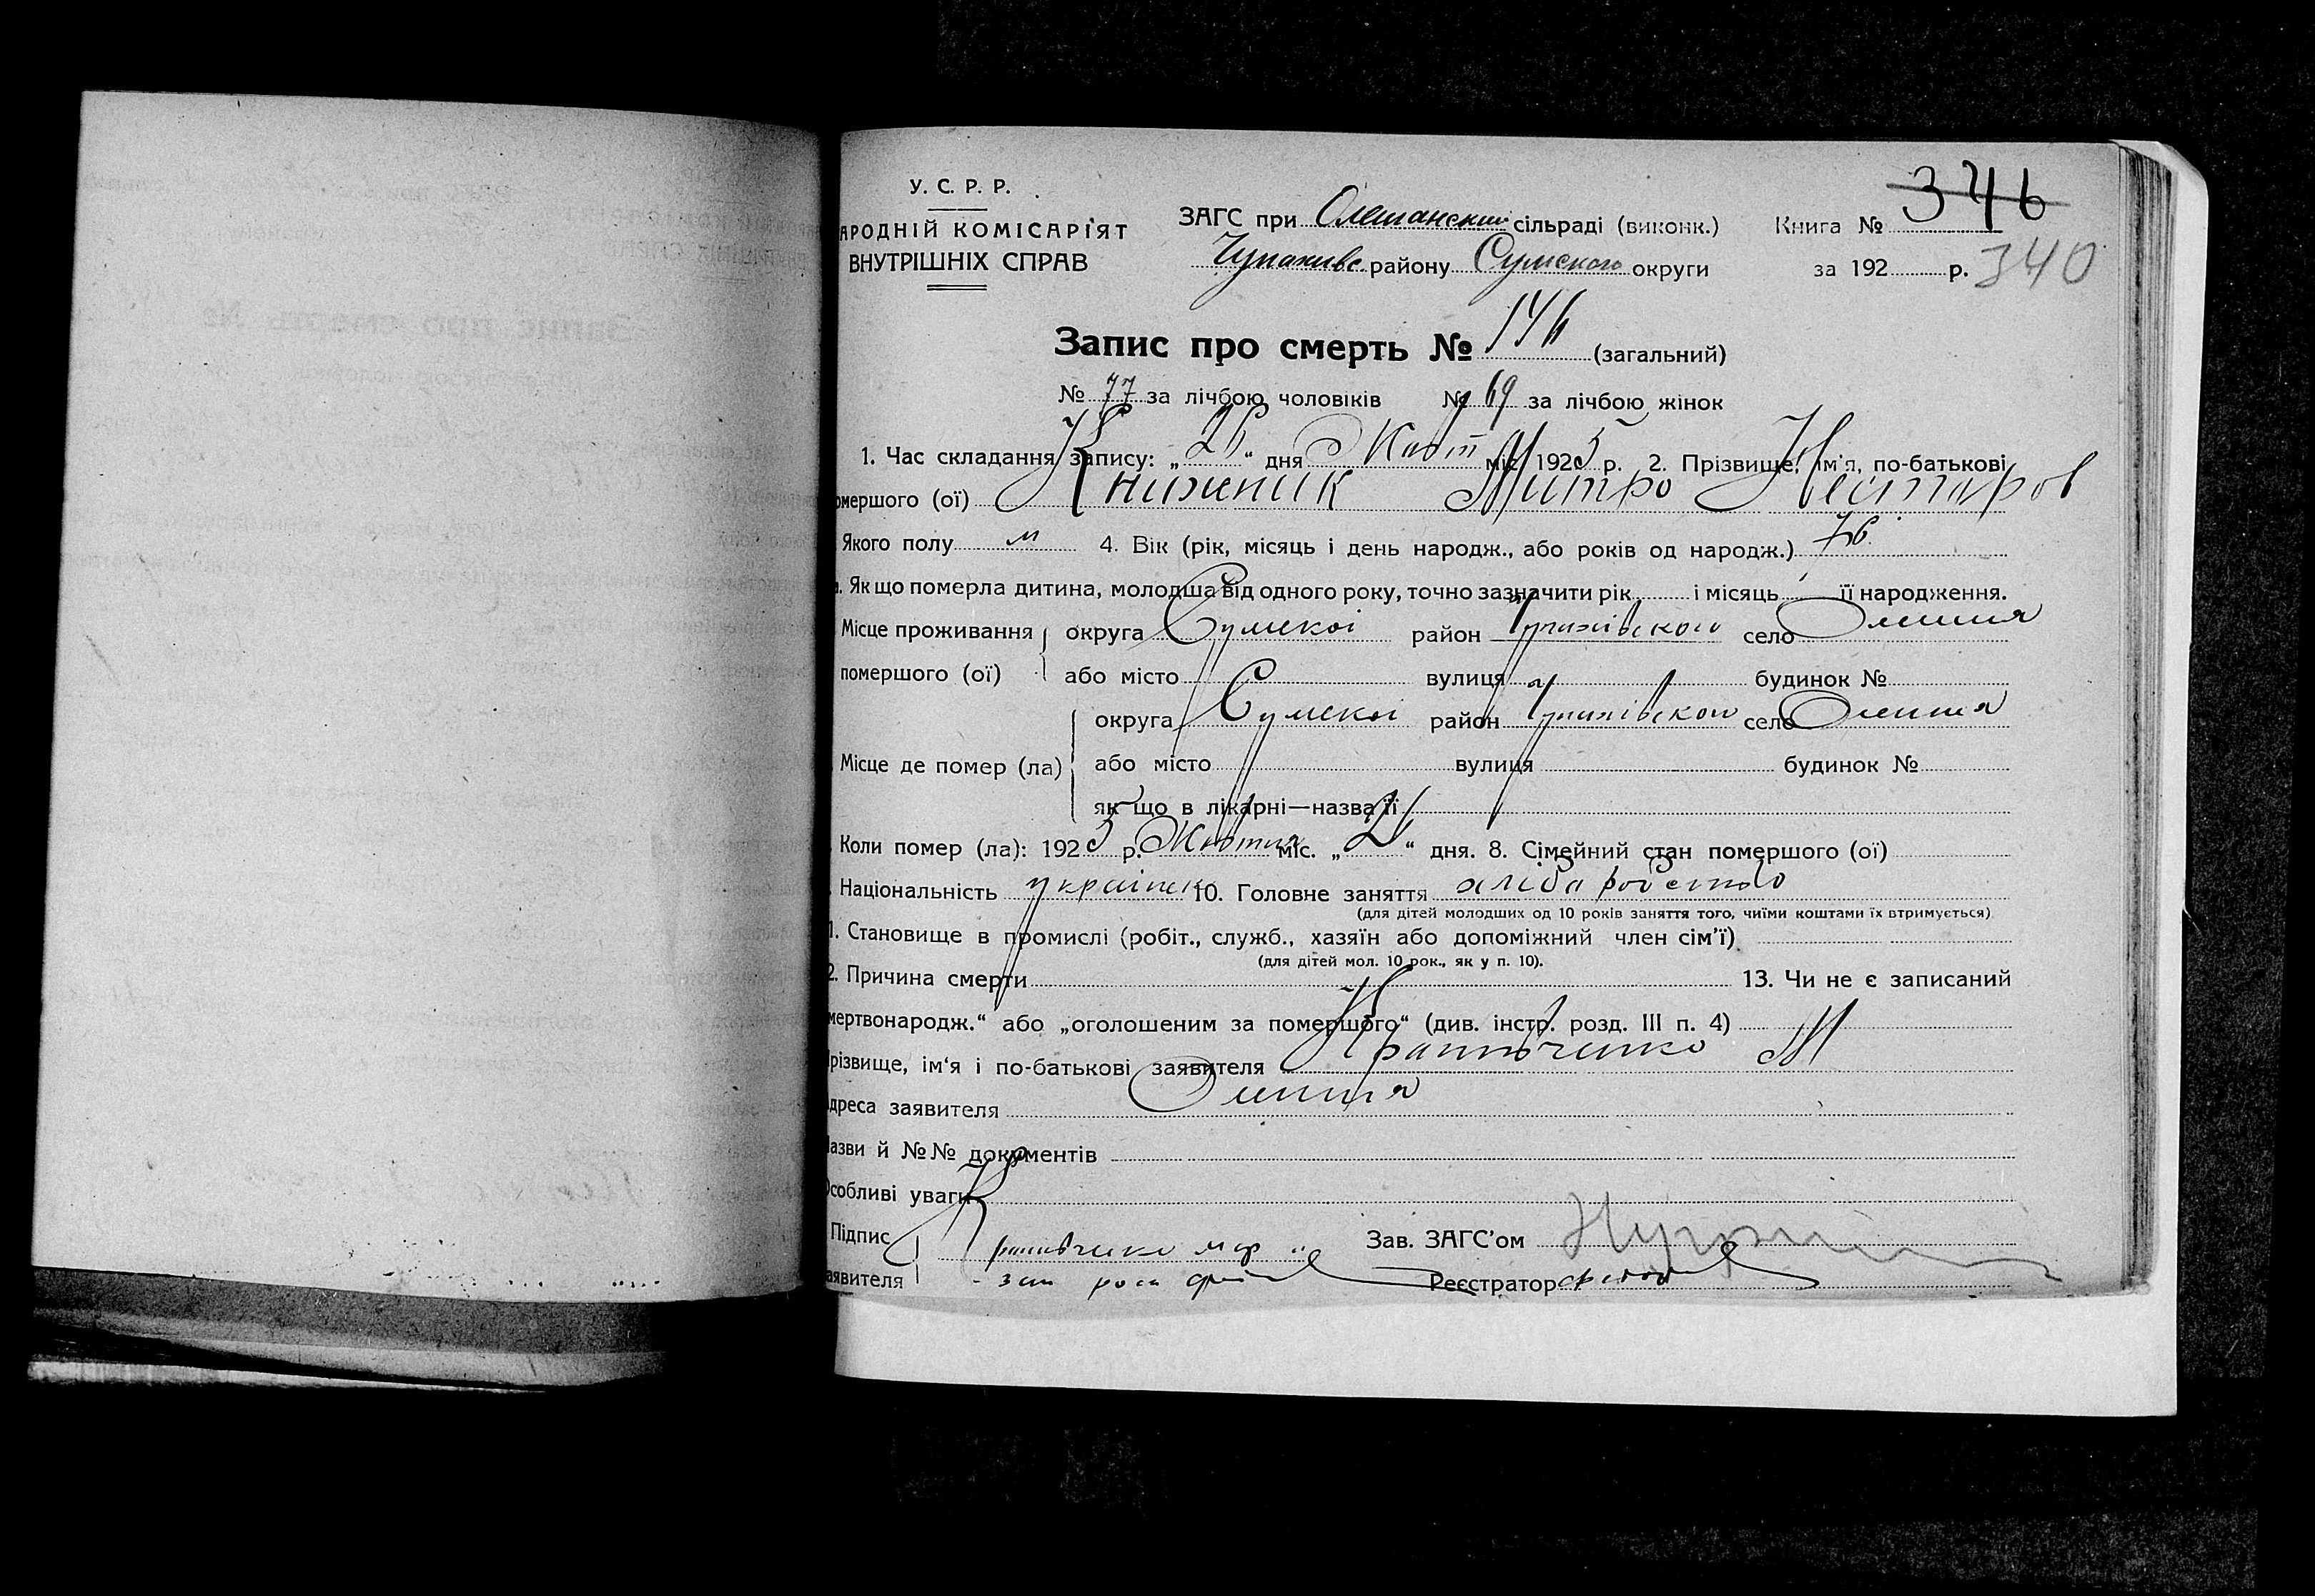 346
У. С. Р. Р.
АРОДНІЙ КОМІСАРІЯТ
ВНУТРІШНІХ СПРАВ
ЗАГС при Олешанский сільраді (виконк.) Книга №
Чупахивс району Сумского округи за 192 р. 340
Запис про смерть № 146 (загальний)
№ 77 за лічбою чоловіків № 69 за лічбою жінок
1. Час складання запису: „26“ дня Жовт міс. 1925 р. 2. Прізвище, ім'я, по-батькові
омершого (ої) Книжник Митро Нестиров
Якого полу м 4. Вік (рік, місяць і день народж., або років од народж.) 76
. Як що померла дитина, молодша від одного року, точно зазначити рік і місяць її народження.
Місце проживання округа Сумскої район село Олешня
помершого (ої) або місто вулиця будинок №
округа Сумскої район село Олешня
Місце де помер (ла) або місто вулиця будинок №
як що в лікарні—назва її
Коли помер (ла): 1925 р. Жовтня міс. „ “ дня. 8. Сімейний стан помершого (ої)
. Національність українець 10. Головне заняття хлібаробство
(для дітей молодших од 10 років заняття того, чиїми коштами їх втримується)
1. Становище в промислі (робіт., служб., хазяїн або допоміжний член сім'ї)
(для дітей мол. 10 рок., як у п. 10).
2. Причина смерти 13. Чи не є записаний
мертвонародж.“ або „оголошеним за помершого“ (див. інстр. розд. III п. 4)
різвище, ім'я і по-батькові заявителя М
дреса заявителя Олешня
азви й №№ документів
Особливі уваги
Підпис Зав. ЗАГС'ом
аявителя Реєстратор